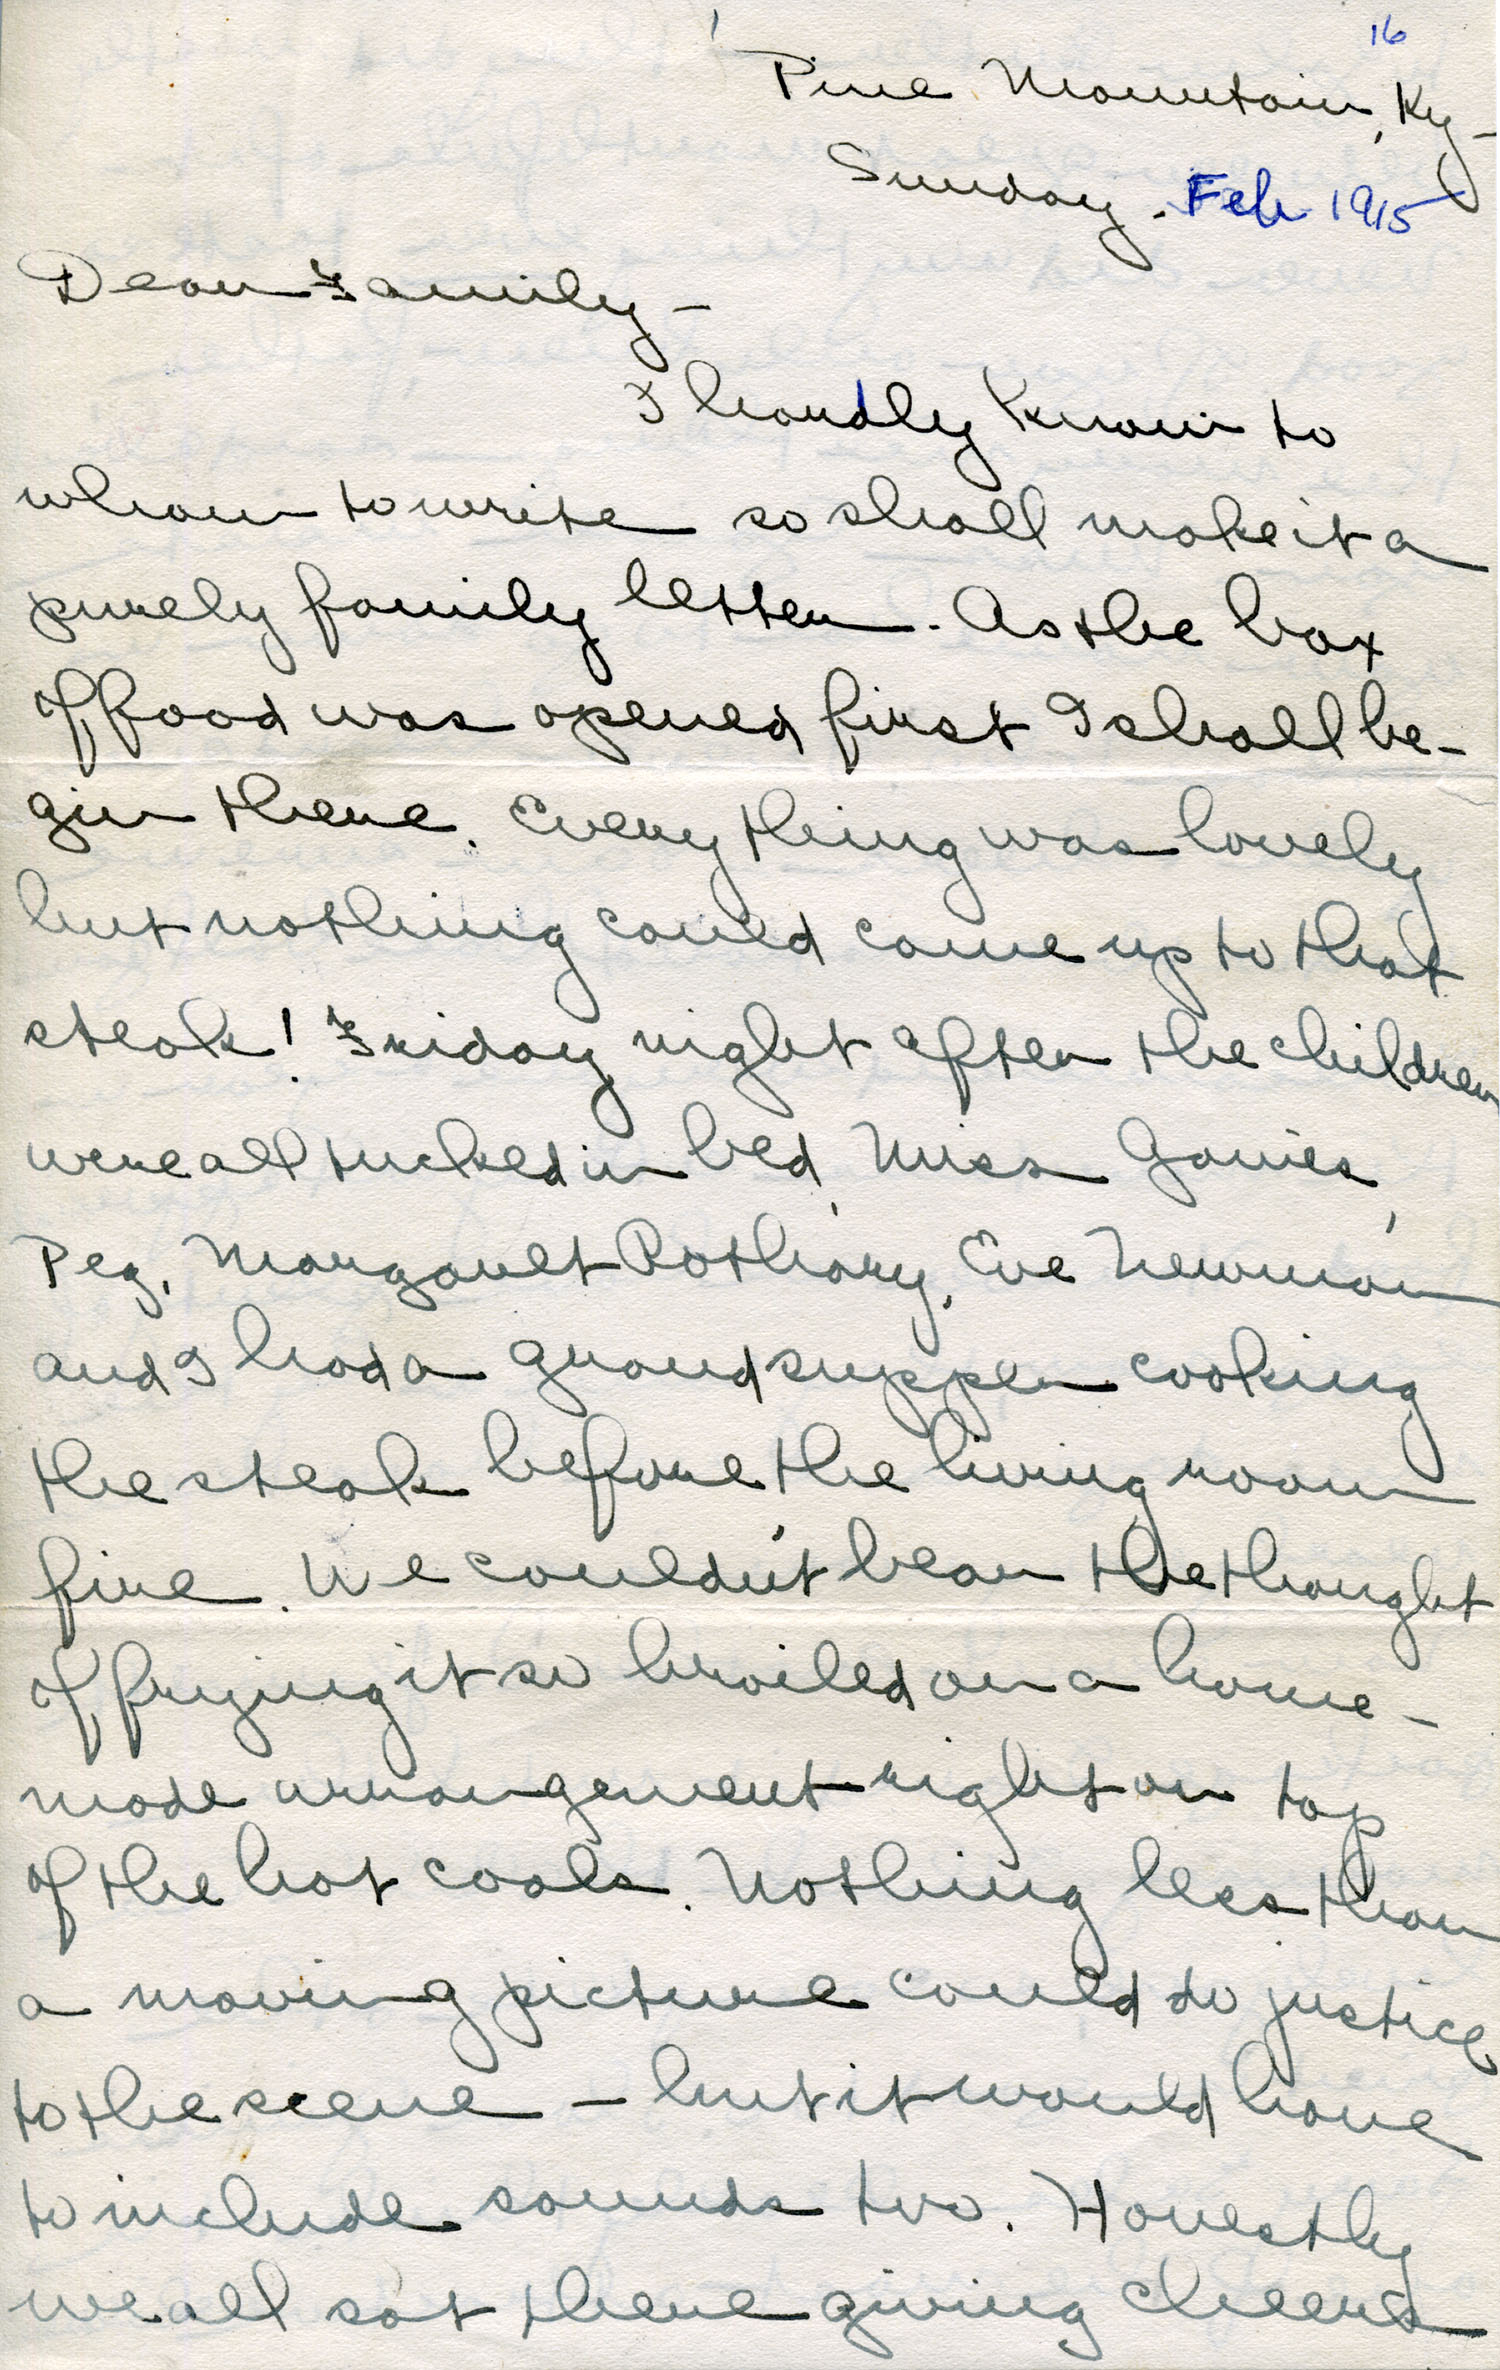 16
Pine Mountain, Ky -
Sunday. Feb 1915
Dear Family -
I hardly know to
whom to write so shall make it a
purely family letter. As the box
of food was opened first I shall be-
gin there. Everything was lovely
but nothing could come up to that
steak! Friday night after the children
were all tucked in bed, Miss Gaines,
Peg, Margaret Rothary, Eve Newman
and I had a grand supper cooking
the steak before, the living room
fire. We couldn't bear the thought
of frying it so broiled on a home-
made arrangement right on top
of the hot coals. Nothing less than
a moving picture could do justice
to the scene - but it would have
to include sounds too. Honestly
we all sat there giving cheers